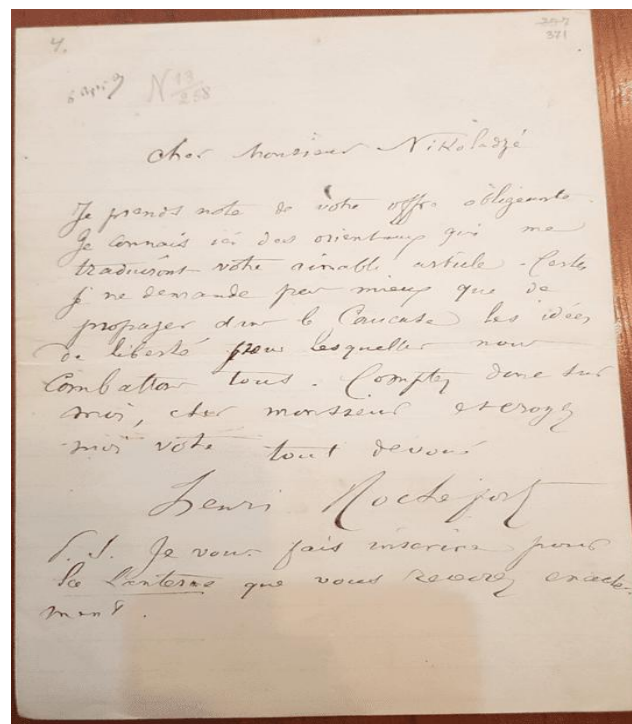 4.
297
371
N 13/258
Cher Monsieur Nikoladzé
Je prends note de votre offre obligeante.
Je connais ici des orientaux qui me
traduiront votre aimable article. Certes
je ne demande pas mieux que de
propager dans le Caucase les idées
de liberté pour lesquelles nous
combattons tous. Comptez donc sur
moi, cher monsieur et croyez
moi votre tout dévoué
Henri Rochefort
P. S. Je vous fais inscrire pour
la Lanterne que vous recevrez exacte-
ment.